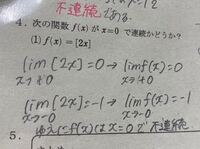 不連続である。
4. 次の関数 f(x) が x=0 で連続かどうか?
(1) f(x) = [2x]
lim [2x]=0 → lim f(x)=0
x→+0 x→+0
lim [2x]=-1 → lim f(x)=-1
x→-0 x→-0
ゆえに f(x) は x=0 で不連続
5.